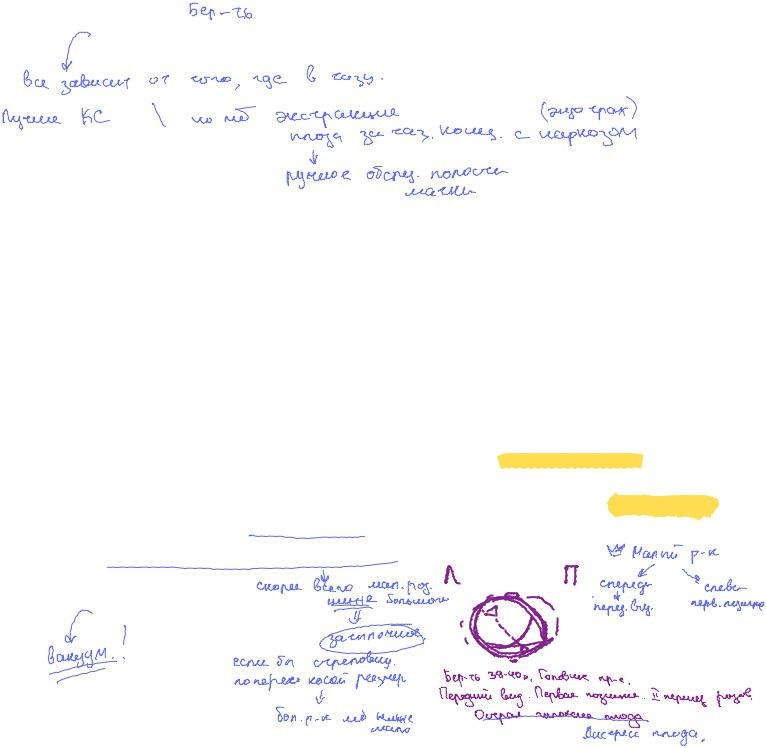 Бер-ть
Все зависит от того, где в тазу.
Лучше КС \ но мб экстракция (эндотрах)
плода за таз. конец. с наркозом
ручное обслед. полости
матки
Малый р-к
спереди слева
перед. вид. перв. позиция
Л П
скорее всего мал. род.
ниже большого
затылочное
Вакуум. !
если бы
поперек косой размер
бол. р-к мб ниже
мало
Бер-ть 39-40н. Головное пр-е.
Передний вид. Первая позиция. II период родов.
Острая гипоксия плода
Дистресс плода.